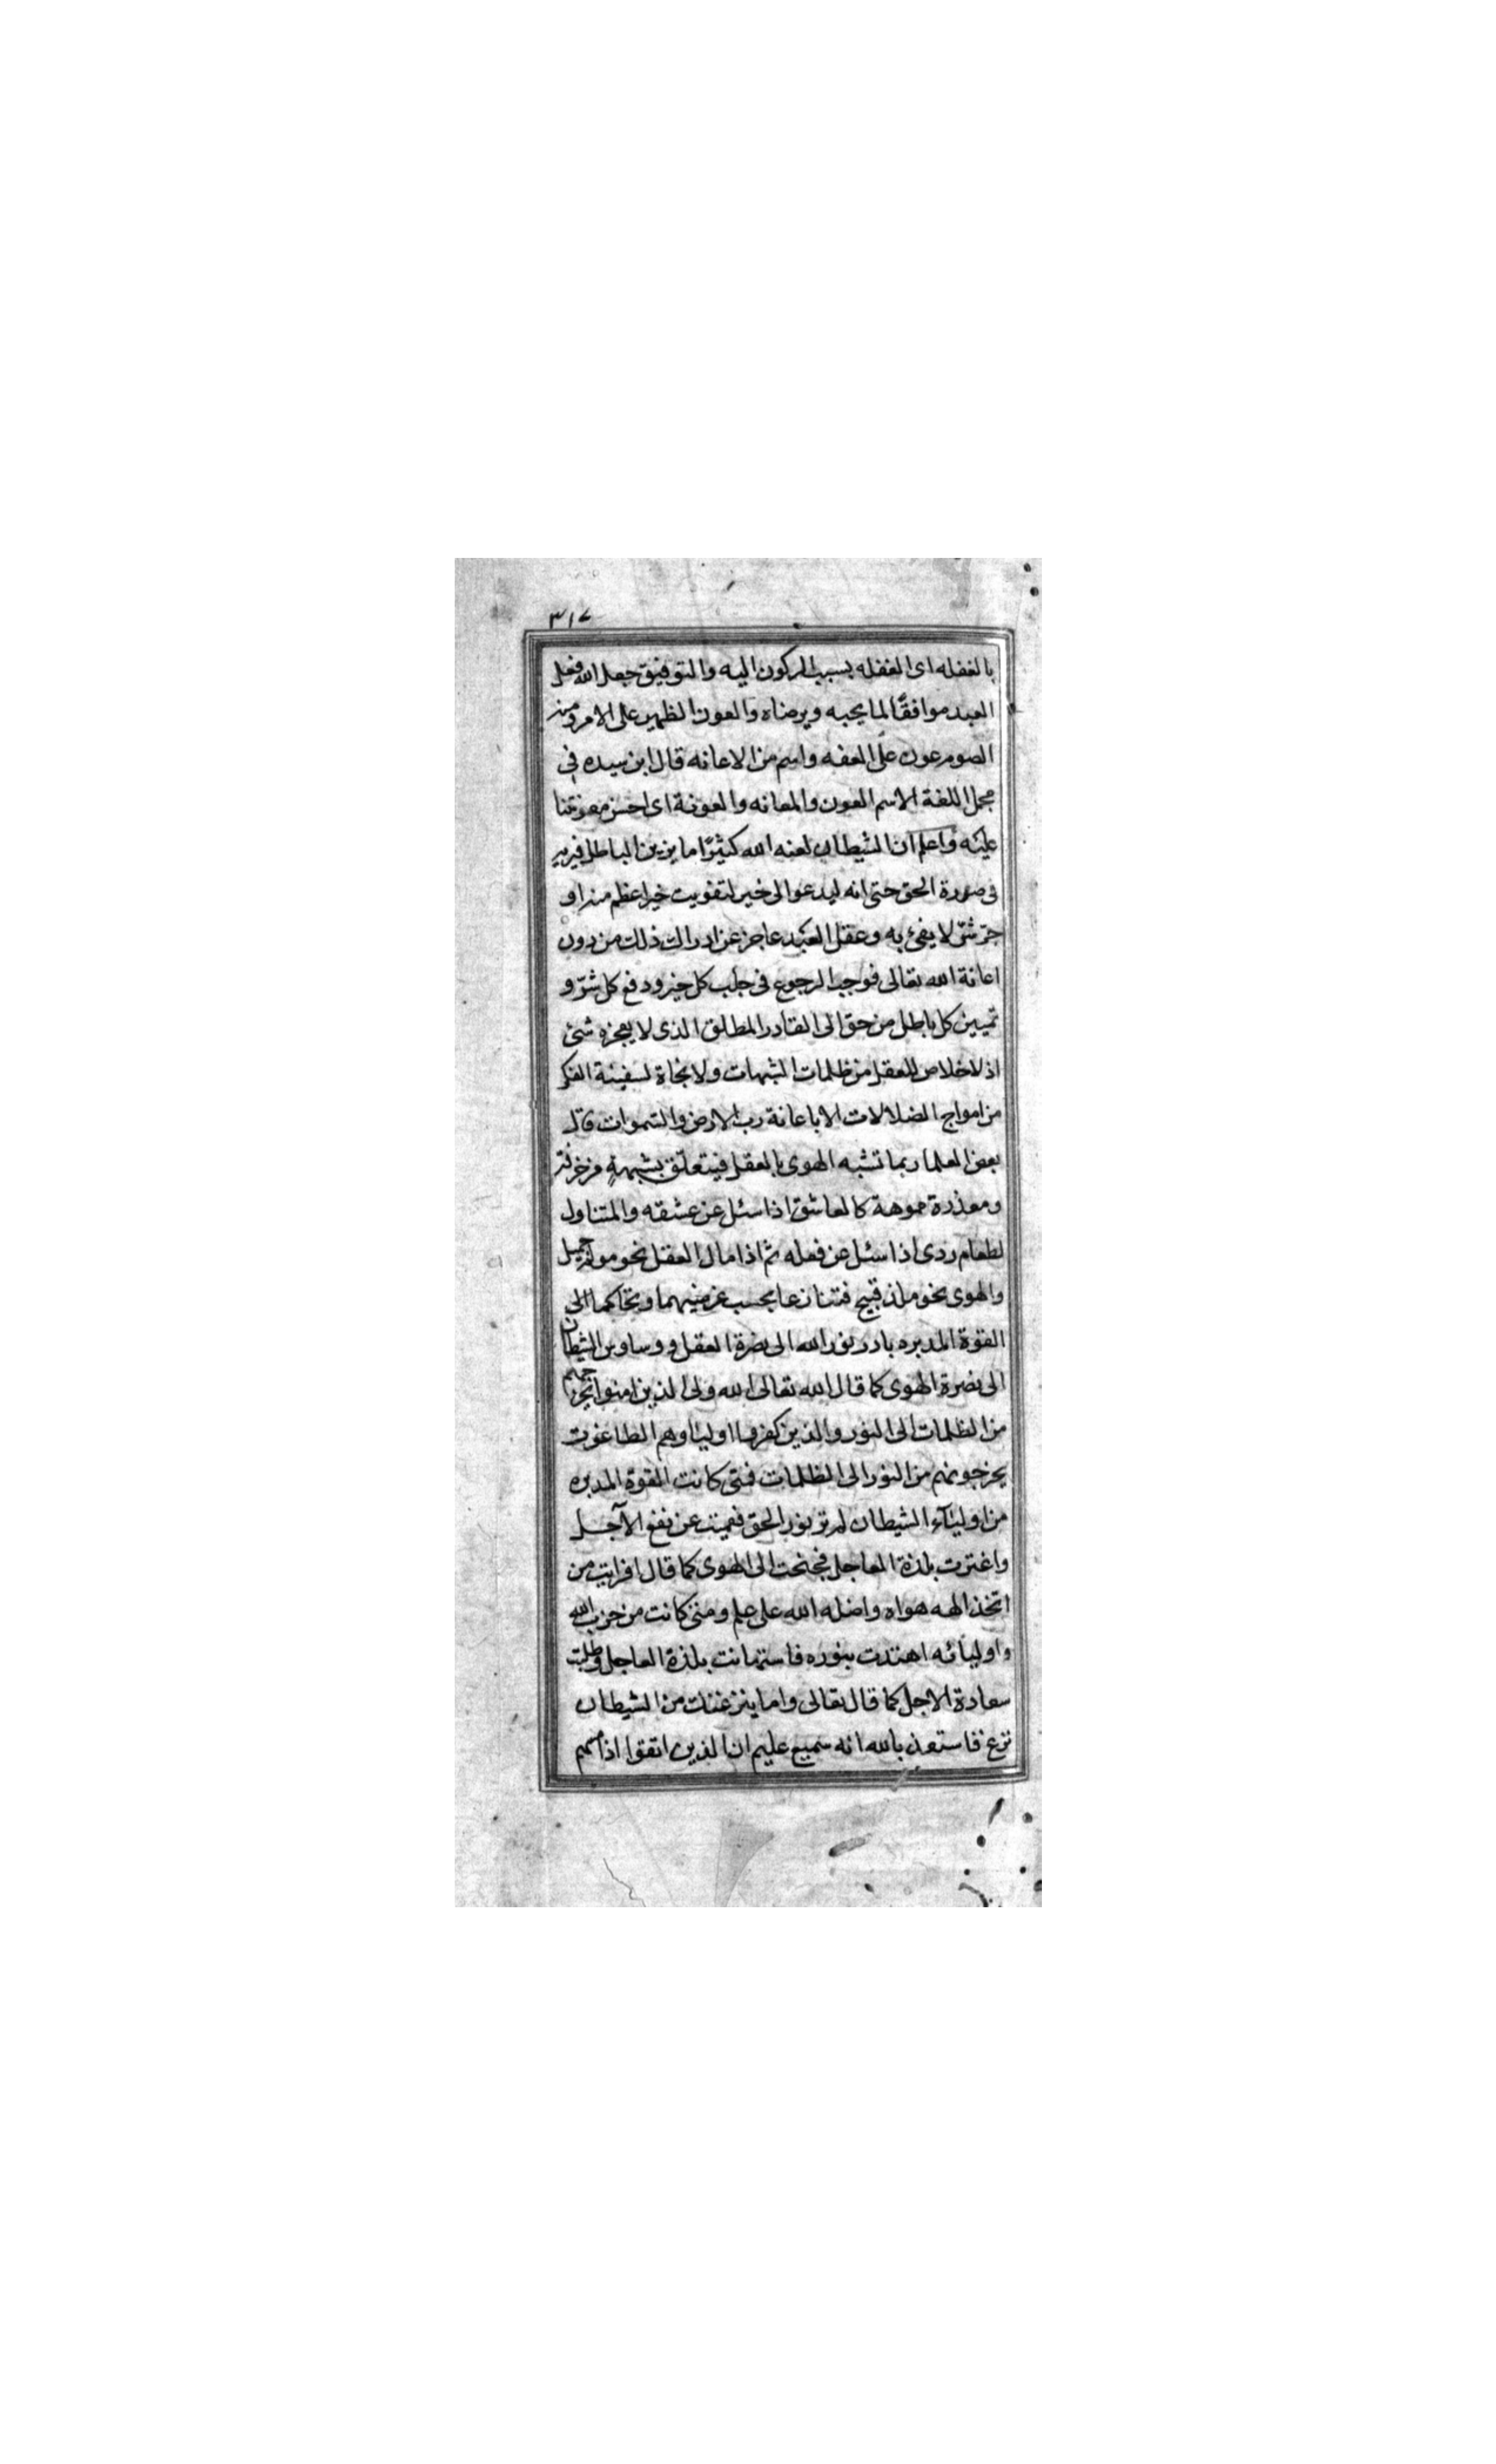 ٣١٧
بالغفله اى الغفله بسبب الركون اليه والتوفيق جعل الله فعل
العبد موافقًا لما يحبه ويرضاه والعون الظهير على الامر ومنه
الصوم عون على العفه واسم من الاعانه قال ابن سيده فى
مجمل اللغة الاسم العون والمعانه والعونة اى احسن معونتنا
عليه واعلم ان الشيطان لعنه الله كثيرًا ما يزين الباطل فيريه
فى صورة الحق حتى انه ليدعوا الى خير لتفويت خير اعظم منه او
جرّ شرّ لا يفئ به وعقل العبد عاجز عن ادراك ذلك من دون
اعانة الله تعالى فوجب الرجوع فى جلب كل خير ودفع كل شرّ و
تمييز كل باطل من حق الى القادر المطلق الذى لا يعجزه شئ
اذ لا خلاص للعقل من ظلمات الشبهات ولا نجاة لسفينة الفكر
من امواج الضلالات الا باعانة رب الارض والسموات قال
بعض العلما ربما تشبه الهوى بالعقل فيتعلّق بشبهةٍ مزخرفة
ومعذرة مموهة كالعاشق اذا سئل عن عشقه والمتناول
لطعام ردى اذا سئل عن فعله ثم اذا مال العقل نحو مولم جميل
والهوى نحو ملذ قبيح فتنازعا بحسب غرضيهما وتحاكما الى
القوة المدبره بادر نور الله الى نصرة العقل ووساوس الشيطان
الى نصرة الهوى كما قال الله تعالى الله ولى الذين امنوا يخرجهم
من الظلمات الى النور والذين كفروا اولياوهم الطاغوت
يخرجونهم من النور الى الظلمات فمتى كانت القوة المدبره
من اوليآء الشيطان لم تر نور الحق فعميت عن نفع الآجل
واغترت بلذة العاجل فجنحت الى الهوى كما قال افرايت من
اتخذ الهه هواه واضله الله على علم ومتى كانت من حزب الله
واوليائه اهتدت بنوره فاستهانت بلذة العاجل وطلبت
سعادة الاجل كما قال تعالى واما ينزغنك من الشيطان
نزغ فاستعذ بالله انه سميع عليم ان الذين اتقوا اذا مسهم